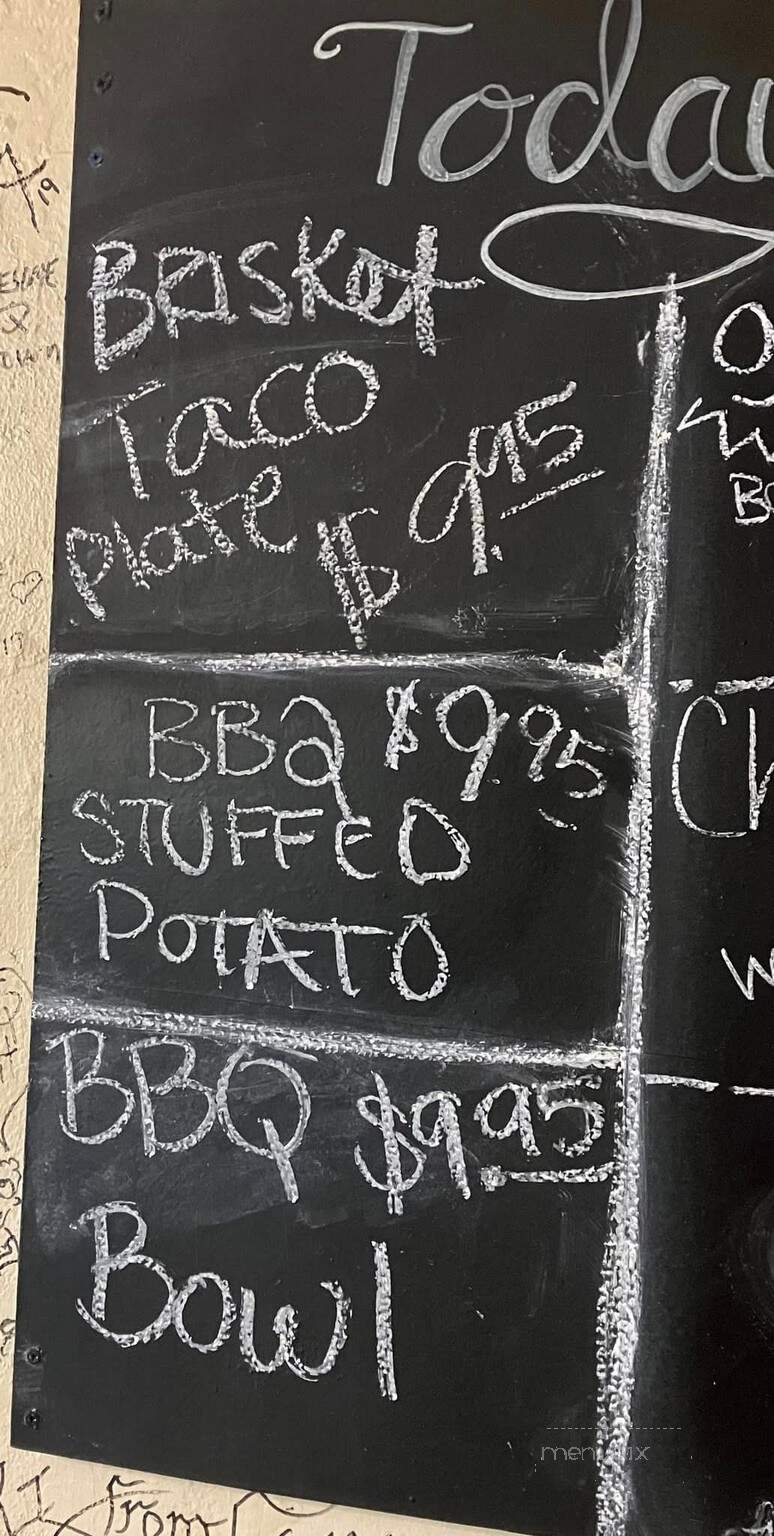 Today
Brisket
Taco
Plate $9.95
BBQ $9.95
STUFFED
POTATO
BBQ $9.95
Bowl
from
menupix